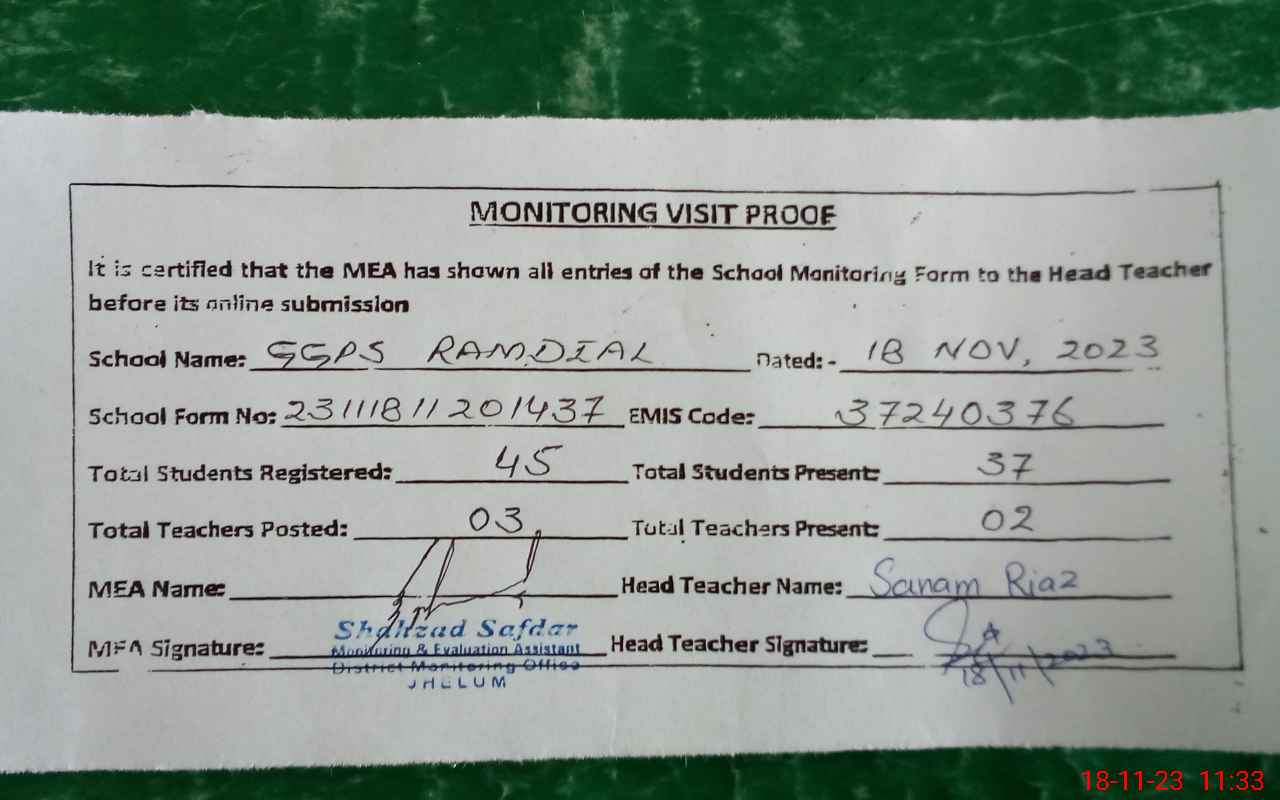 MONITORING VISIT PROOF
It is certified that the MEA has shown all entries of the School Monitoring Form to the Head Teacher
before its online submission
School Name: GGPS RAMDIAL Dated:- 18 NOV, 2023
School Form No: 23111811201437 EMIS Code: 37240376
Total Students Registered: 45 Total Students Present: 37
Total Teachers Posted: 03 Total Teachers Present: 02
MEA Name: Head Teacher Name: Sanam Riaz
MEA Signature: Head Teacher Signature:
Shahzad Safdar
Monitoring & Evaluation Assistant
District Monitoring Office
JHELUM
18/11/2023
18-11-23 11:33